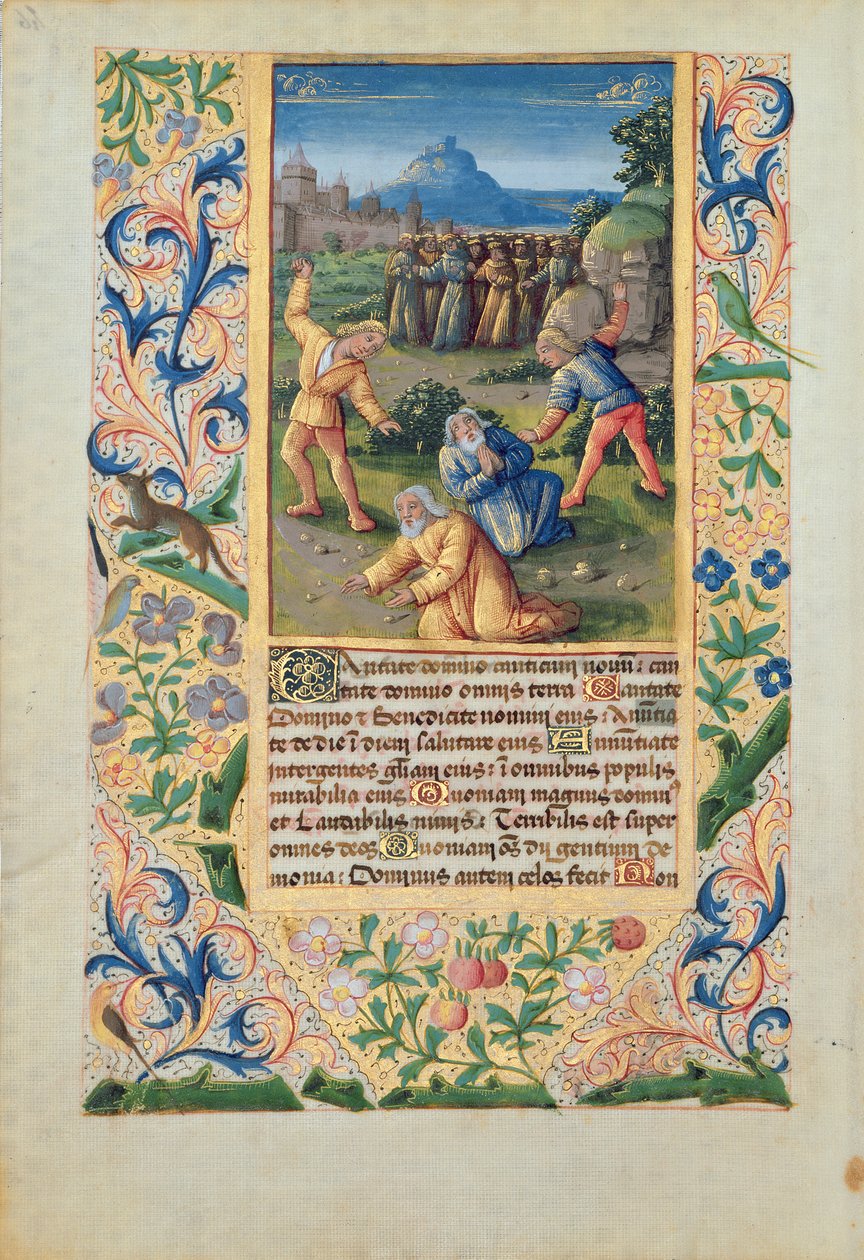 Cantate domino canticum nouū: can
tate domino omnis terra Cantate
Domino ⁊ Benedicite nomini eius: Anūtia
te de die ī diem salutare eius Annūtiate
inter gentes gl̄iam eius: ī omnibus populis
mirabilia eius Quoniam magnus dominꝰ
et Laudibilis nimis: Terribilis est super
omnes deos Quoniam oēs dij gentium de
monia: Dominus autem celos fecit Non